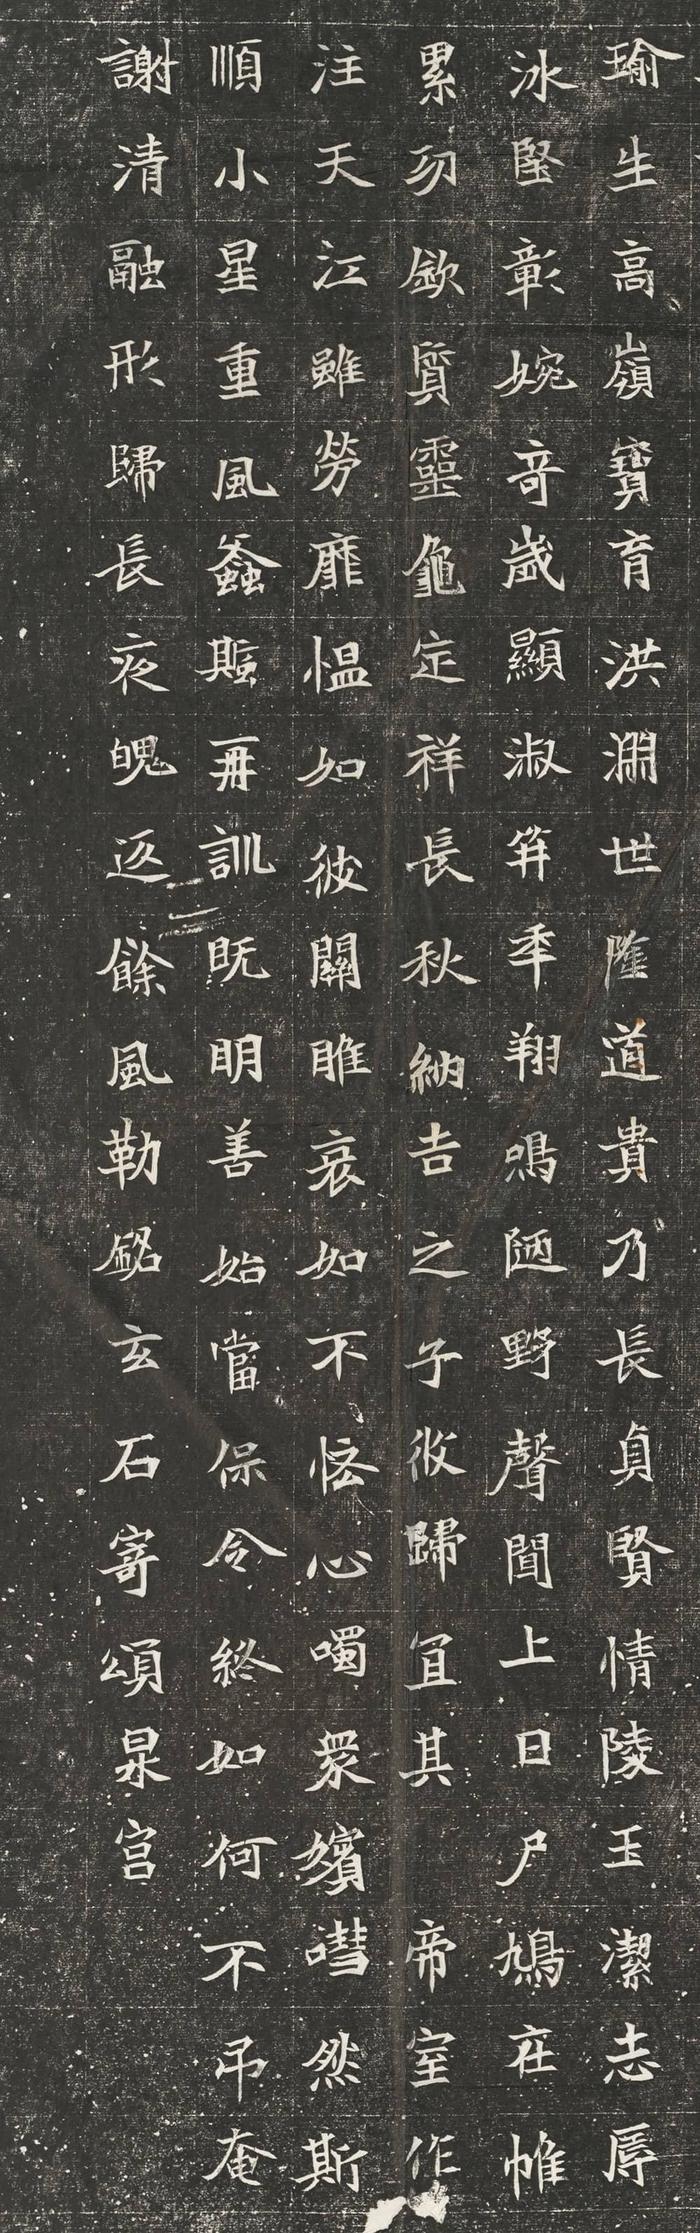 瑜生高嶺寶育洪淵世隆道貴乃長貞賢情陵玉潔志厚
冰堅彰婉奇歲顯淑笄年翔鳴陋野聲聞上日尸鳩在帷
累功欽質靈龜定祥長秋納吉之子攸歸宜其帝室作
注天江雖勞靡愠如彼關雎哀如不恡心囑衆嬪嘒然斯
順小星重風螽斯再訓既明善始當保令終如何不弔奄
謝清融形歸長夜魄返餘風勒銘玄石寄頌泉宮